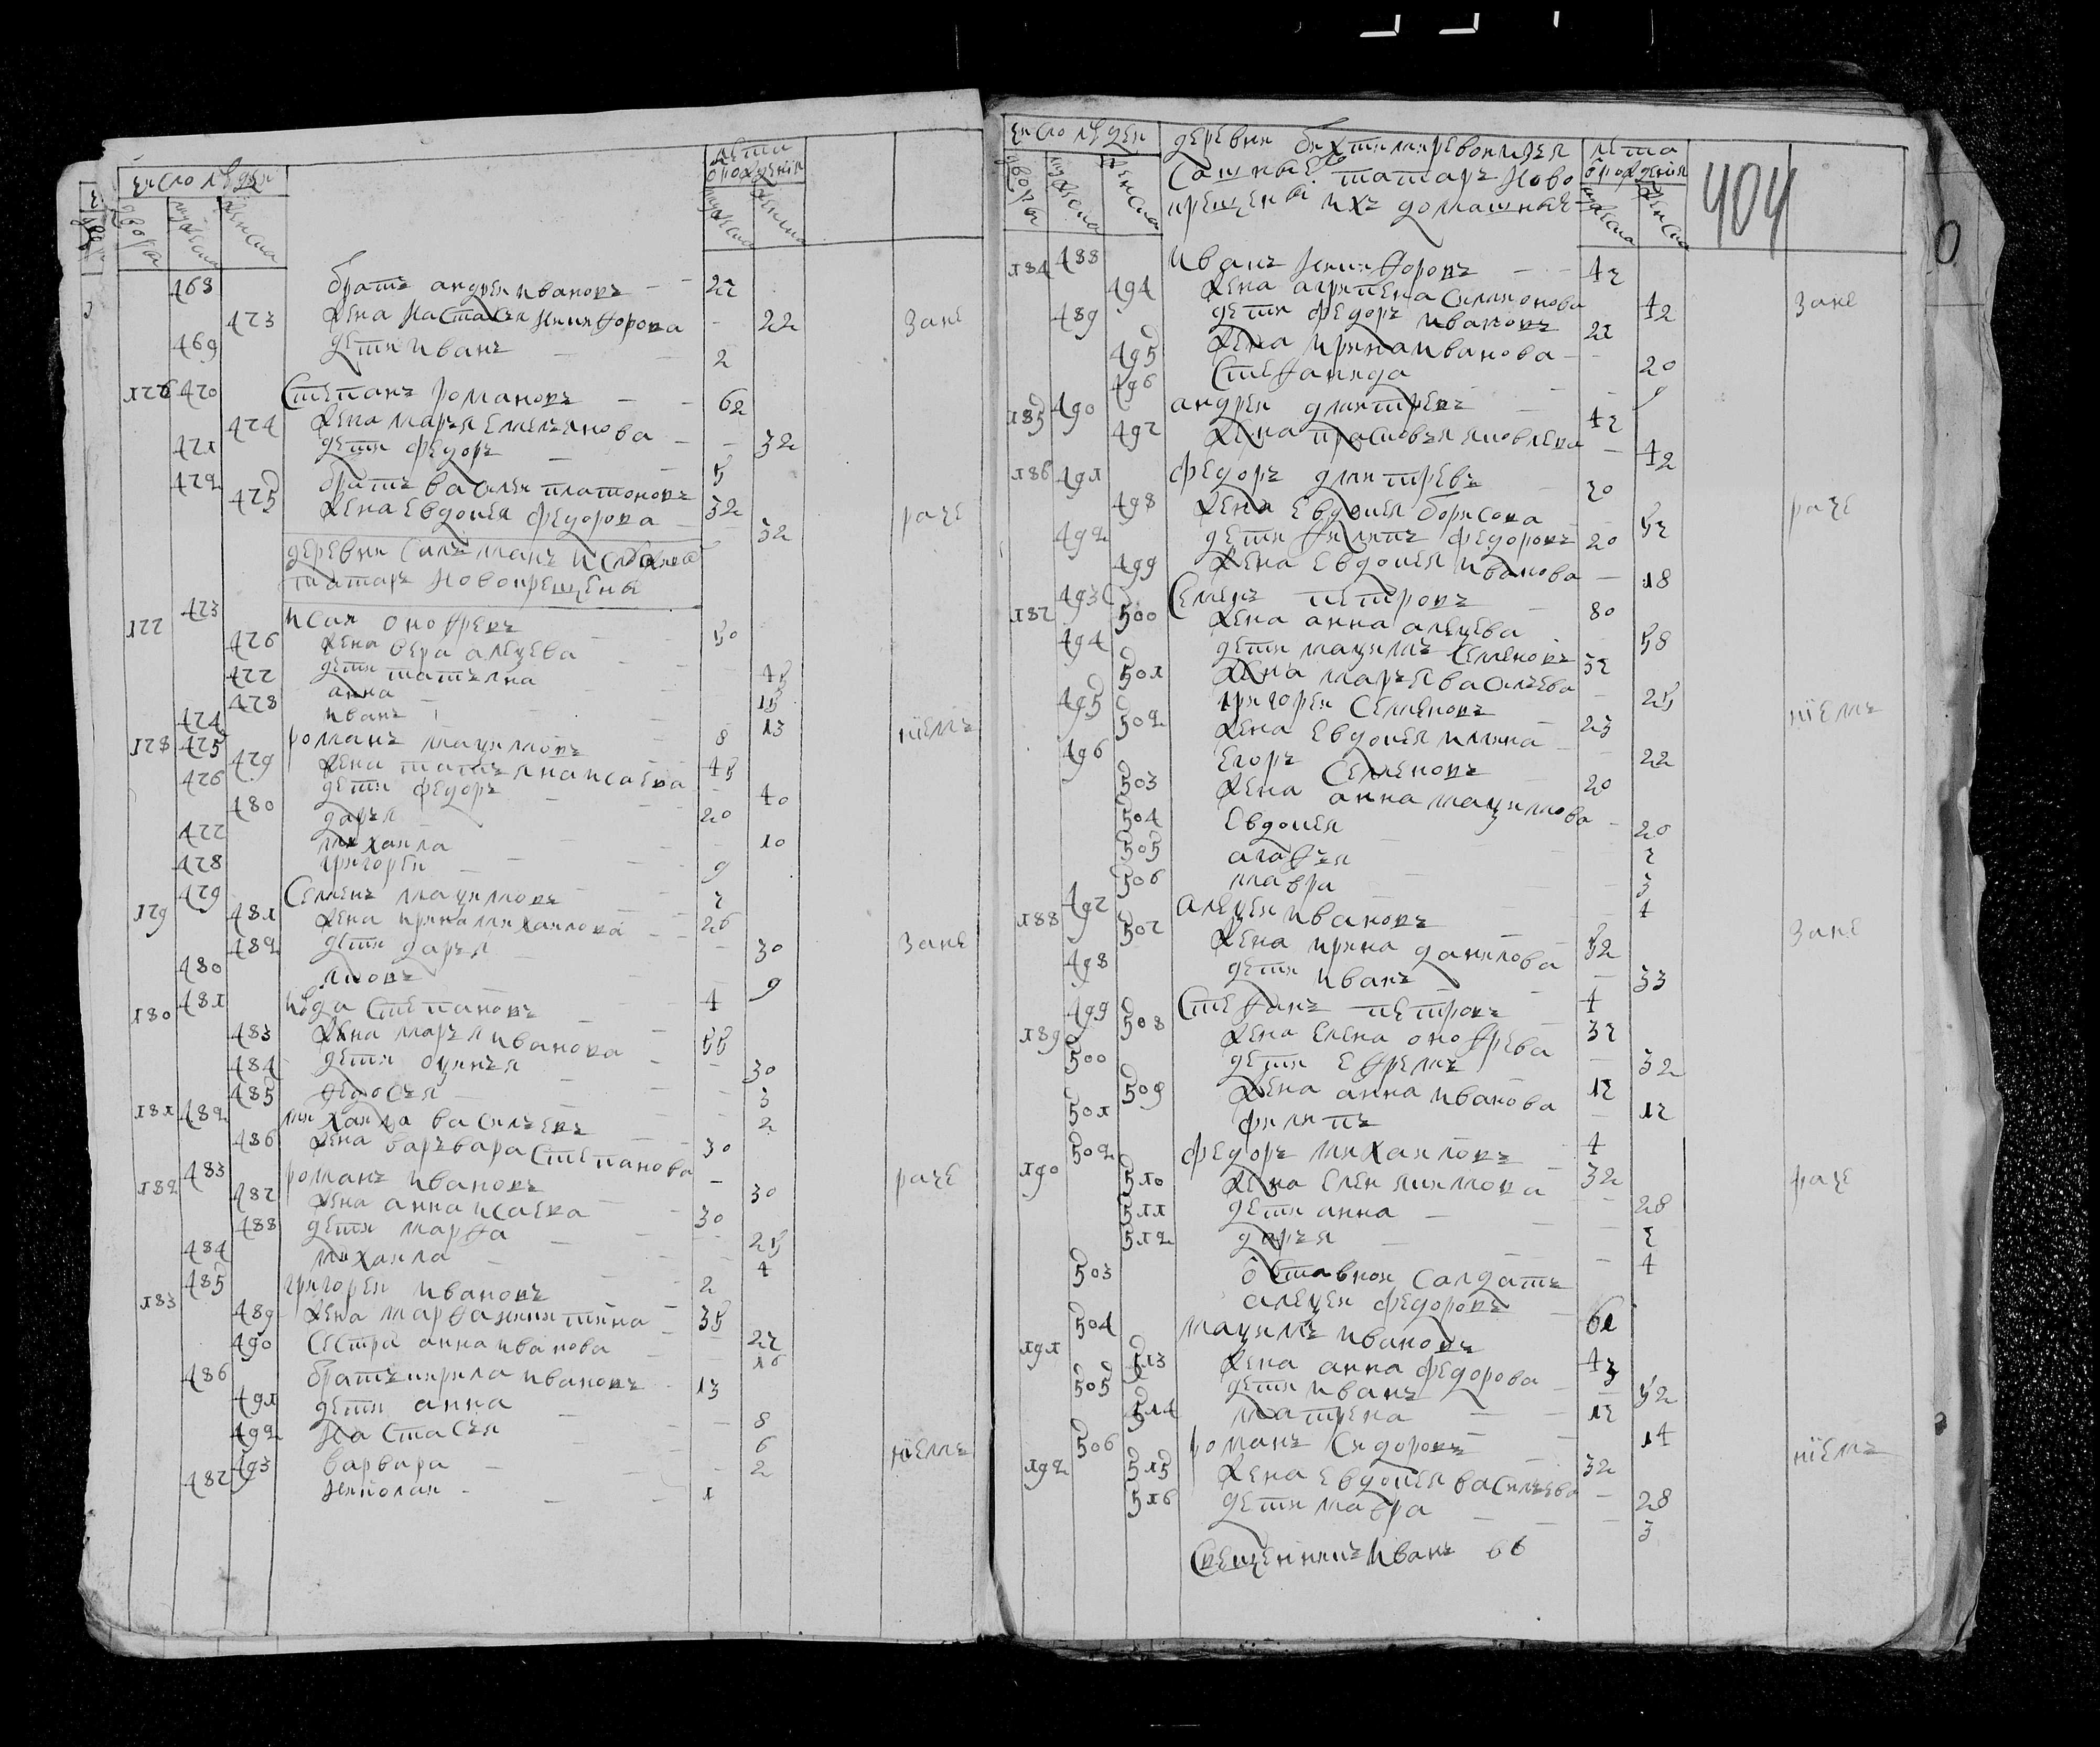 число людей
лета от рождения
двора
мужеска
женска
мужеска
женска
468 братъ андреи ивановъ 27
473 жена настасья никифорова 22 зане
469 дети иванъ 2
176 470 степанъ романовъ 62
474 жена марья емельянова 32
471 дети федоръ 5
472 братъ василеи платоновъ 32
475 жена евдокея федорова 32 раче
татаръ новокрещены
177 473 исаи онофревъ 50
476 жена вера алецева 45
477 дети татьяна 15
478 анна 13
474 иванъ 8 ніемъ
178 475 романъ мацимовъ 45
479 жена татьяна исаева 40
476 дети федоръ 20
480 дарья 10
477 михаила 9
478 григореи 7
179 479 семенъ мацимовъ 26
481 жена ирина михаилова 30 зане
482 дети дарья 9
480 яковъ 4
180 481 степановъ 55
483 жена марья иванова 30
484 дети оцинья 3
485 федосья 2
181 482 михаила васильевъ 30
486 жена варъвара степанова 30
182 483 романъ ивановъ 30 раче
487 жена анна исаева 25
488 дети марфа 4
484 михаила 2
183 485 григореи ивановъ 35
489 жена марфа никитина 27
490 сестра анна иванова 16
486 братъ кирила ивановъ 13
491 дети анна 8
492 настасья 6
493 варвара 2 ніемъ
487 николаи 1
число людей
двора
мужеска
женска
татаръ ново
крещены ихъ домашные
лета от рождения
мужеска
женска
404
184 488 иванъ никифоровъ 47
494 жена агрипена симионова 42 зане
489 дети федоръ ивановъ 21
495 жена ирина иванова 20
496 стефанида 9
185 490 андреи дмитревъ 47
497 жена прасковья яковлева 42
186 491 федоръ дмитревъ 70
498 жена евдокея борисова 57 раче
492 дети филипъ федоровъ 20
499 жена евдокея иванова 18
187 493 семенъ петровъ 80
500 жена анна алецева 58
494 дети мацимъ семеновъ 37
501 жена марья васильева 25
495 григореи семеновъ 23 ніемъ
502 жена евдокея илина 22
496 егоръ семеновъ 20
503 жена анна мацимова 20
504 евдокея 7
505 агафья 3
506 мавра 4
188 497 алецеи ивановъ 52
507 жена ирина данилова 33 зане
498 дети иванъ 4
189 499 стефанъ петровъ 37
508 жена елена онофрева 32
500 дети ефремъ 17
509 жена анна иванова 17
501 филипъ 4
190 502 федоръ михаиловъ 32 раче
510 жена елена 28
511 дети анна 7
512 дарья 4
503 отставнои салдатъ
алецеи федоровъ 61
191 504 мацимъ ивановъ 43
513 жена анна федорова 52
505 дети иванъ 17
514 матрена 14
192 506 романъ сидоровъ 32 ніемъ
515 жена евдокея васильева 28
516 дети мавра 3
священникъ иванъ